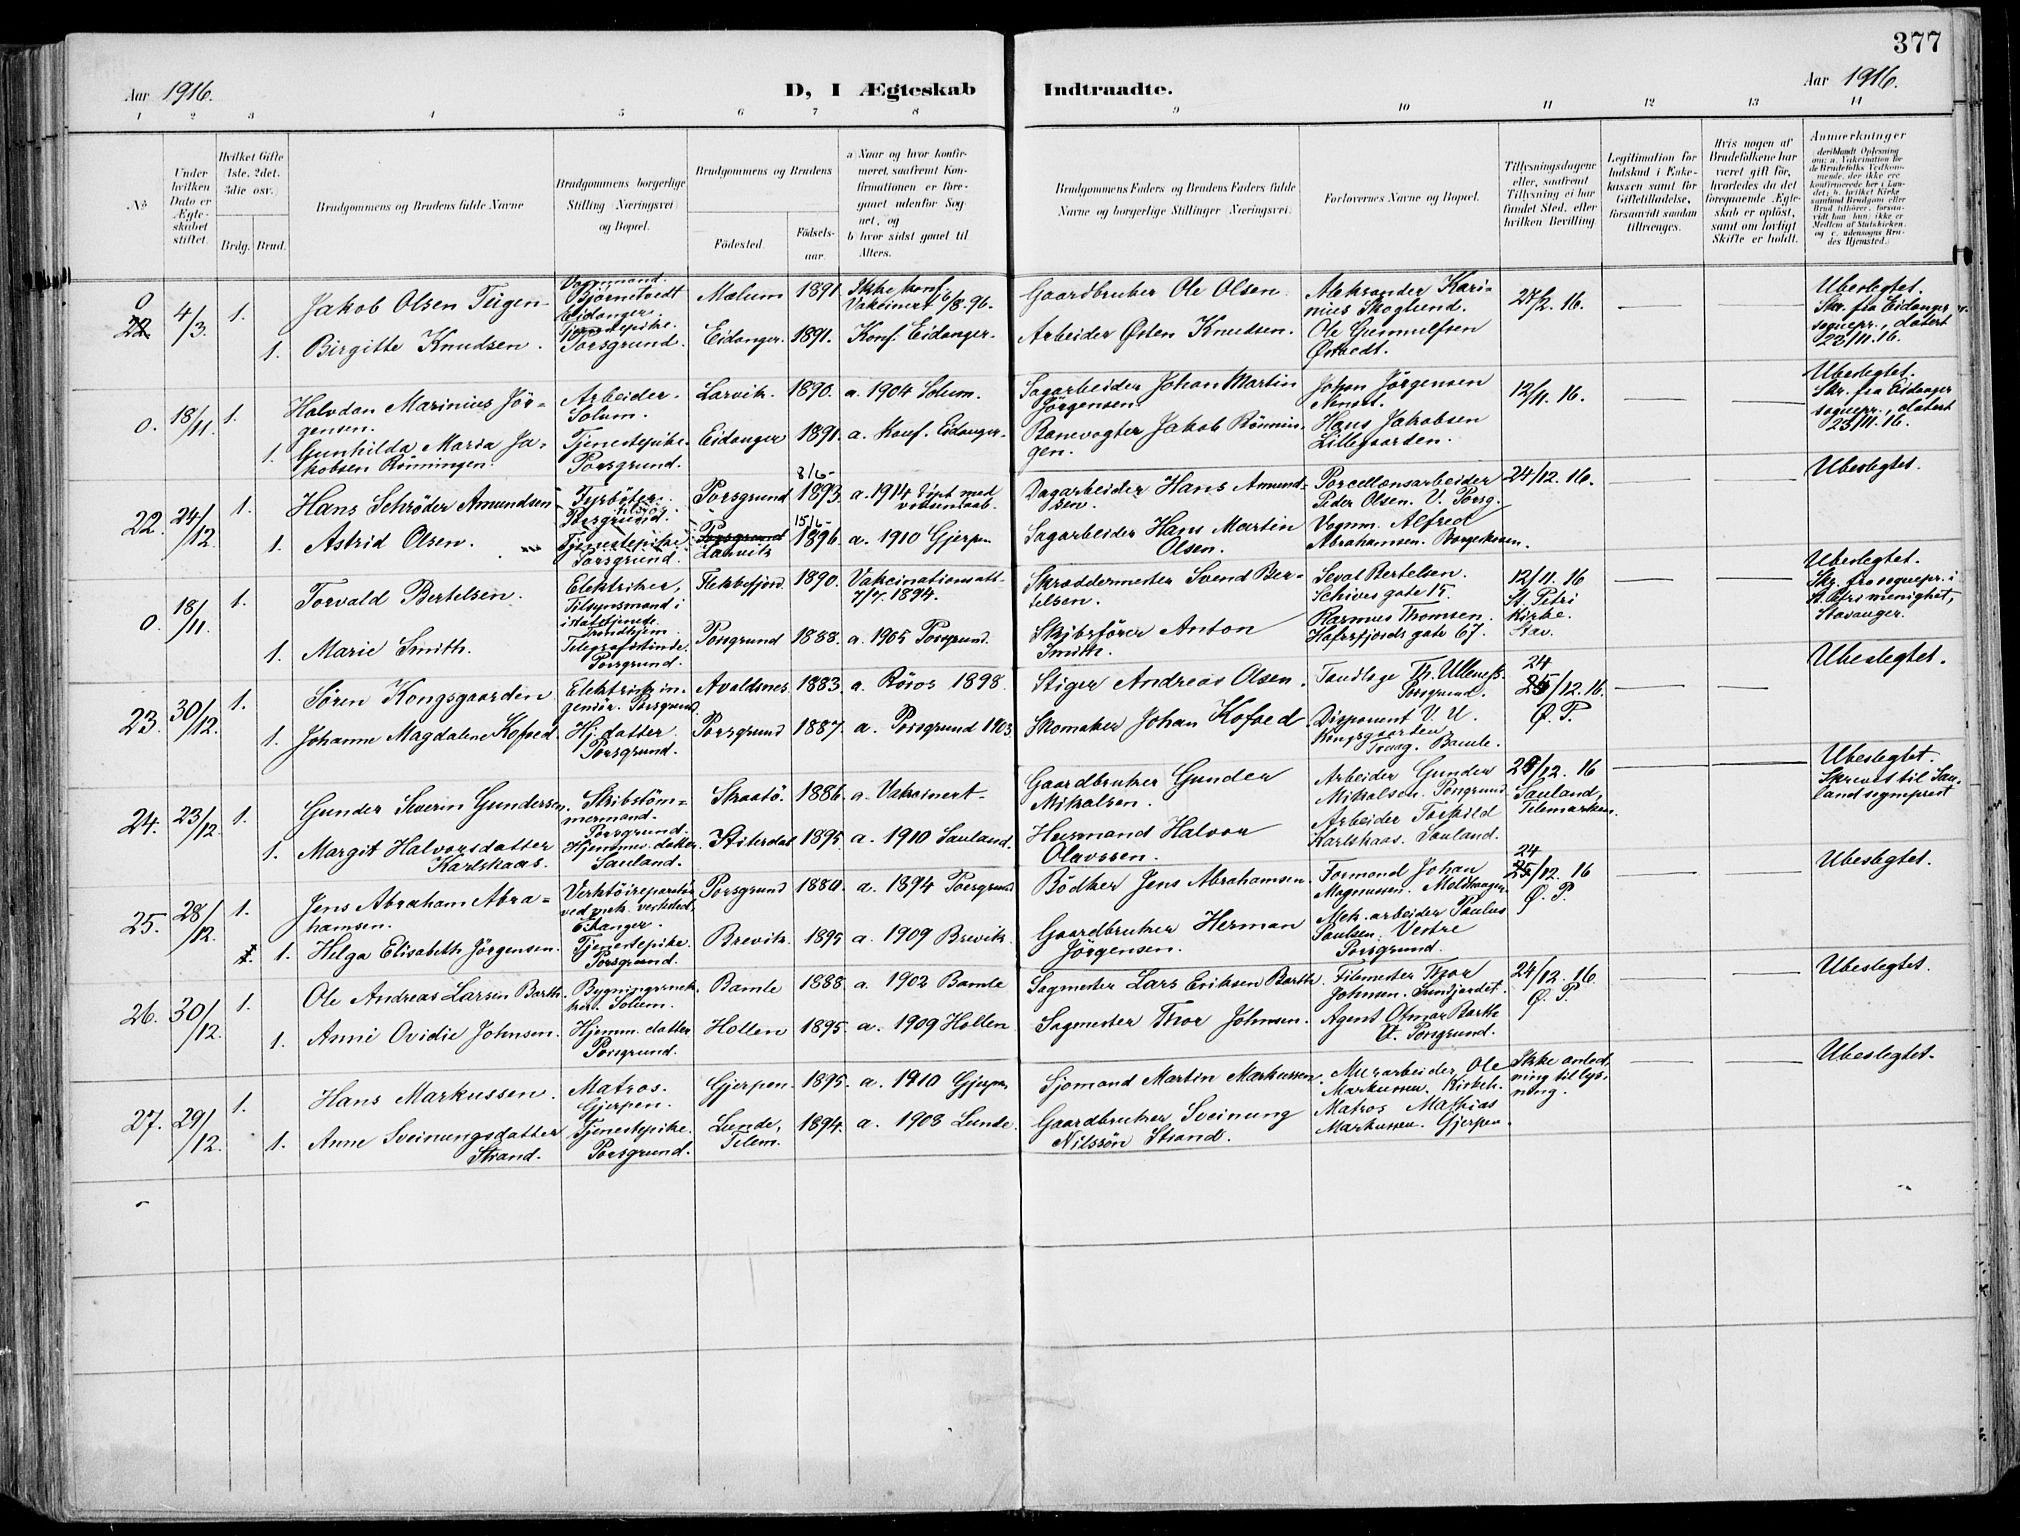 377
Aar 1916.
D, I Ægteskab Indtraadte.
Aar 1916.
1 2 3 4 5 6 7 8 9 10 11 12 13 14
No
Under hvilken Dato er Ægteskabet stiftet.
Hvilket Gifte 1ste, 2det, 3die osv.
Brdg. Brud.
Brudgommens og Brudens fulde Navne
Brudgommens borgerlige Stilling (Næringsvei) og Bopæl.
Brudgommens og Brudens
Fødested.
Fødselsaar.
a Naar og hvor konfirmeret, saafremt Konfirmationen er foregaaet udenfor Sognet, og
b hvor sidst gaaet til Alters.
Brudgommens Faders og Brudens Faders fulde Navne og borgerlige Stillinger (Næringsvei).
Forlovernes Navne og Bopæl.
Tillysningsdagene eller, saafremt Tillysning ei har fundet Sted, efter hvilken Bevilling
Legitimation for Indskud i Enkekassen samt for Giftetilladelse, forsaavidt saadan tiltrænges.
Hvis nogen af Brudefolkene har været gift før, hvorledes da det foregaaende Ægteskab er opløst, samt om lovligt Skifte er holdt.
Anmærkninger
0
22
4/3
1.
Jakob Olsen Teigen
Vognmand.
Bjørntvedt
Eidanger.
Mælum 1891
Ikke konf.
Vakcinert 6/8.96.
Gaardbruker Ole Olsen
Aleksander Karinius Skoglund.
27/2. 16.
Ubeslegtet.
Skr. fra Eidanger
sognepr., datert
23/11.16.
1.
Birgitte Knudsen.
Tjenestepike.
Porsgrund.
Eidanger. 1891. Konf. Eidanger.
Arbeider Østen Knudsen.
Ole Gunnulfsen
0. 18/11. 1.
Halvdan Marinius Jörgensen.
Arbeider.
Solum.
Larvik. 1890. a. 1904 Solum.
Sagarbeider Johan Martin
Jörgensen.
Johan Jörgensen
12/11. 16.
Ubeslegtet.
Skr. fra Eidanger
sognepr., datert
23/11.16.
1.
Gunhilda Maria Jakobsen Rönningen.
Tjenestepike.
Porsgrund.
Eidanger 1891. a. Konf. Eidanger.
Banevogter Jakob Rönningen.
Hans Jakobsen
Lillegaarden.
22. 24/12. 1.
Hans Schröder Amundsen
Fyrböter.
Porsgrund.
Porsgrund
8/6
1893. a. 1914
Dagarbeider Hans Amundsen.
Porcellænsarbeider
Peder Olsen. V. Porsg.
24/12. 16.
Ubeslegtet.
1.
Astrid Olsen.
Tjenestepike.
Porsgrund.
Porsgrund
Larvik
15/6
1896. a. 1910 Gjerpen
Sagarbeider Hans Martin
Olsen.
Vognm. Alfred
Abrahamsen. Borgeskogen.
0. 18/11. 1.
Torvald Bertelsen.
Elektriker,
Tilsynsmand i
Flekkefjord. 1890. Vakcinationsatt.
7/7 1894.
Skræddermester Svend Bertelsen.
Seval Bertelsen.
Schives gate 15.
12/11. 16
St. Petri
Kirke.
Stav.
Ubeslegtet.
Skr. fra sognepr. i
St. Petri menighet,
Stavanger.
1.
Marie Smith.
Telegrafistinde.
Porsgrund.
Porsgrund 1888. a. 1905 Porsgrund.
Skibsförer Anton
Smith.
Rasmus Thomsen.
Hafrsfjords gate 67.
23. 30/12. 1.
Sören Kongsgaarden
Elektrisk ingeniör. Porsgrund.
Avaldsnes. 1883. a. Röros 1898.
Stiger Andreas Olsen.
Tandlæge Th. Ullenes.
Porsgrund.
24
25/12. 16.
Ø. P.
Ubeslegtet.
1.
Johanne Magdalene Kofoed.
Hj. datter.
Porsgrund.
Porsgrund 1887. a. Porsgrund 1903.
Skomaker Johan Kofoed.
Disponent V. U.
Kongsgaarden
Bamle.
24. 23/12. 1.
Gunder Severin Gundersen.
Skibstömmermand.
Porsgrund.
Straatö. 1886. a. Vakcinert
Gaardbruker Gunder
Mikalsen.
Arbeider Gunder
Mikalsen. Porsgrund
23/12. 16
Sauland,
Telemarken.
Ubeslegtet.
Skrevet til Sauland sogneprest
1.
Margit Halvorsdatter
Karlskaas.
Hjemmev. datter.
Sauland.
Hitterdal 1895 a. 1910 Sauland.
Husmand Halvor
Olavssen.
Arbeider Torkild
Karlskaas. Sauland.
25. 28/12. 1.
Jens Abraham Abrahamsen.
Verktöireparatör
ved mek. verksted,
Porsgrund 1880. a. 1894 Porsgrund
Bödker Jens Abrahamsen.
Formand Johan
Magnussen.
24
25/12. 16
Ø. P.
Ubeslegtet.
1. 1.
Helga Elisabeth Jörgensen.
Tjenestepike.
Porsgrund.
Brevik. 1895 a. 1909 Brevik.
Gaardbruker Herman
Jörgensen.
Mek. arbeider Paulus
Paulsen. Vestre
Porsgrund.
26. 30/12. 1.
Ole Andreas Larsen Barth.
Solum.
Bamle 1888. a. 1902 Bamle
Sagmester Lars Eriksen Barth.
Filemester Thor
Johnsen. Sundjordet.
24/12. 16.
Ø. P.
Ubeslegtet.
1.
Anne Ovidie Johnsen.
Hjemm. datter.
Porsgrund.
Hollen 1895. a. 1909 Hollen
Sagmester Thor Johnsen.
Agent Otmar Barth
V. Porsgrund.
27. 29/12. 1.
Hans Markussen.
Matros.
Gjerpen.
Gjerpen. 1895. a. 1910 Gjerpen
Sjömand Martin Markussen.
Murarbeider Ole
Markussen.
Ikke anledning til lysning.
Ubeslegtet.
1.
Anne Sveinungsdatter
Strand.
Tjenestepike.
Porsgrund.
Lunde,
Telem.
1894. a. 1908 Lunde
Gaardbruker Sveinung
Nilssön Strand.
Matros Mathias
Markussen. Gjerpen.